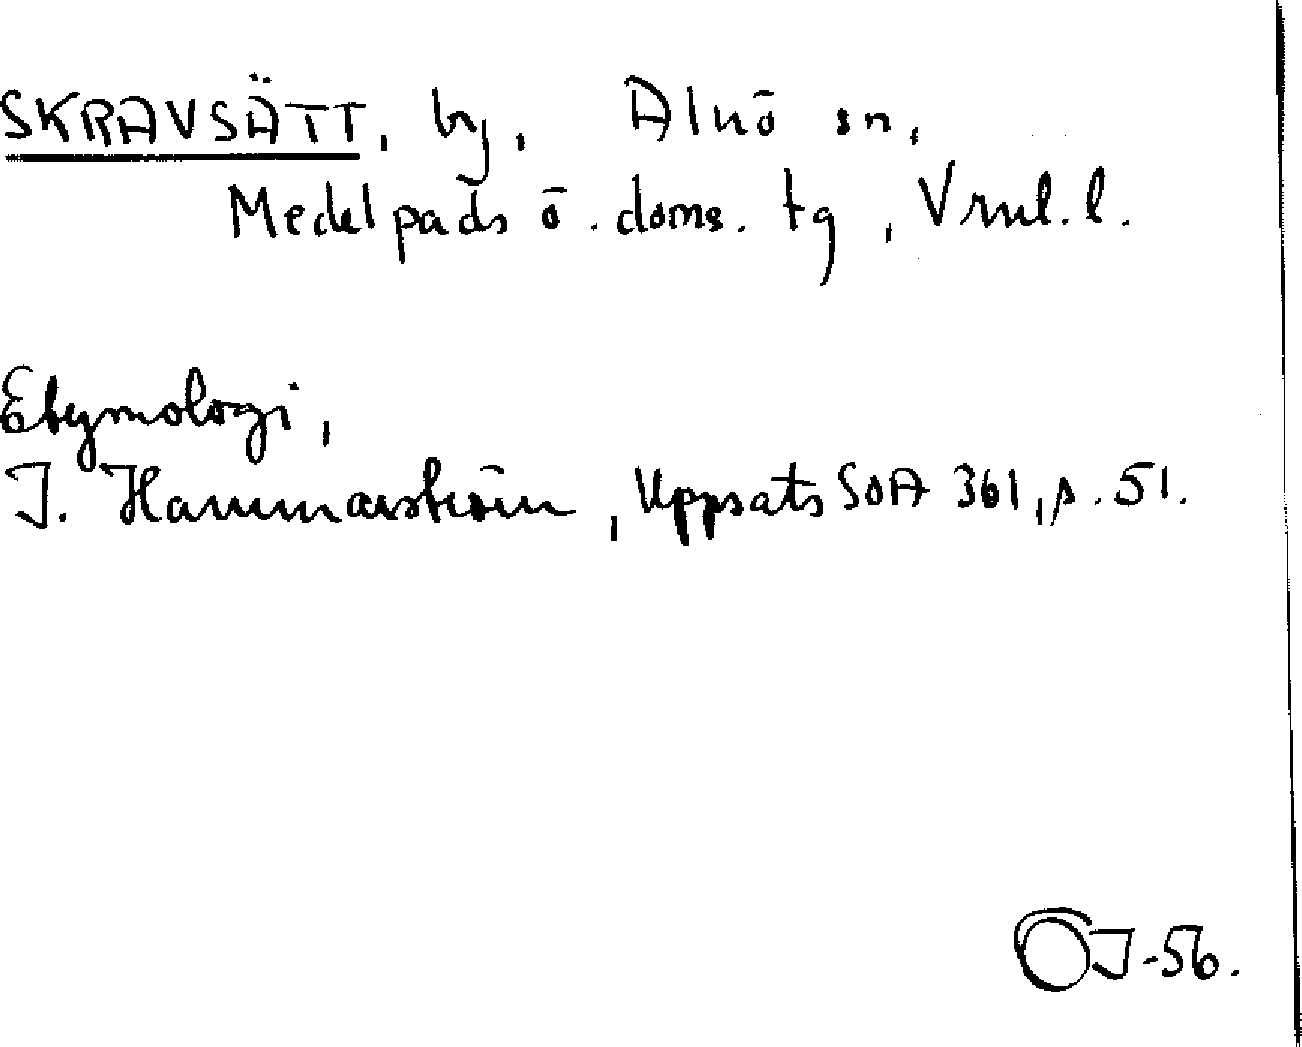 SKRAVSÄTT, by, Alnö sn,
Medelpads ö. doms. tg, Vrnl. l.
Etymologi,
I. Hammarström, Uppsats SOA 361, s. 51.
OJ-56.